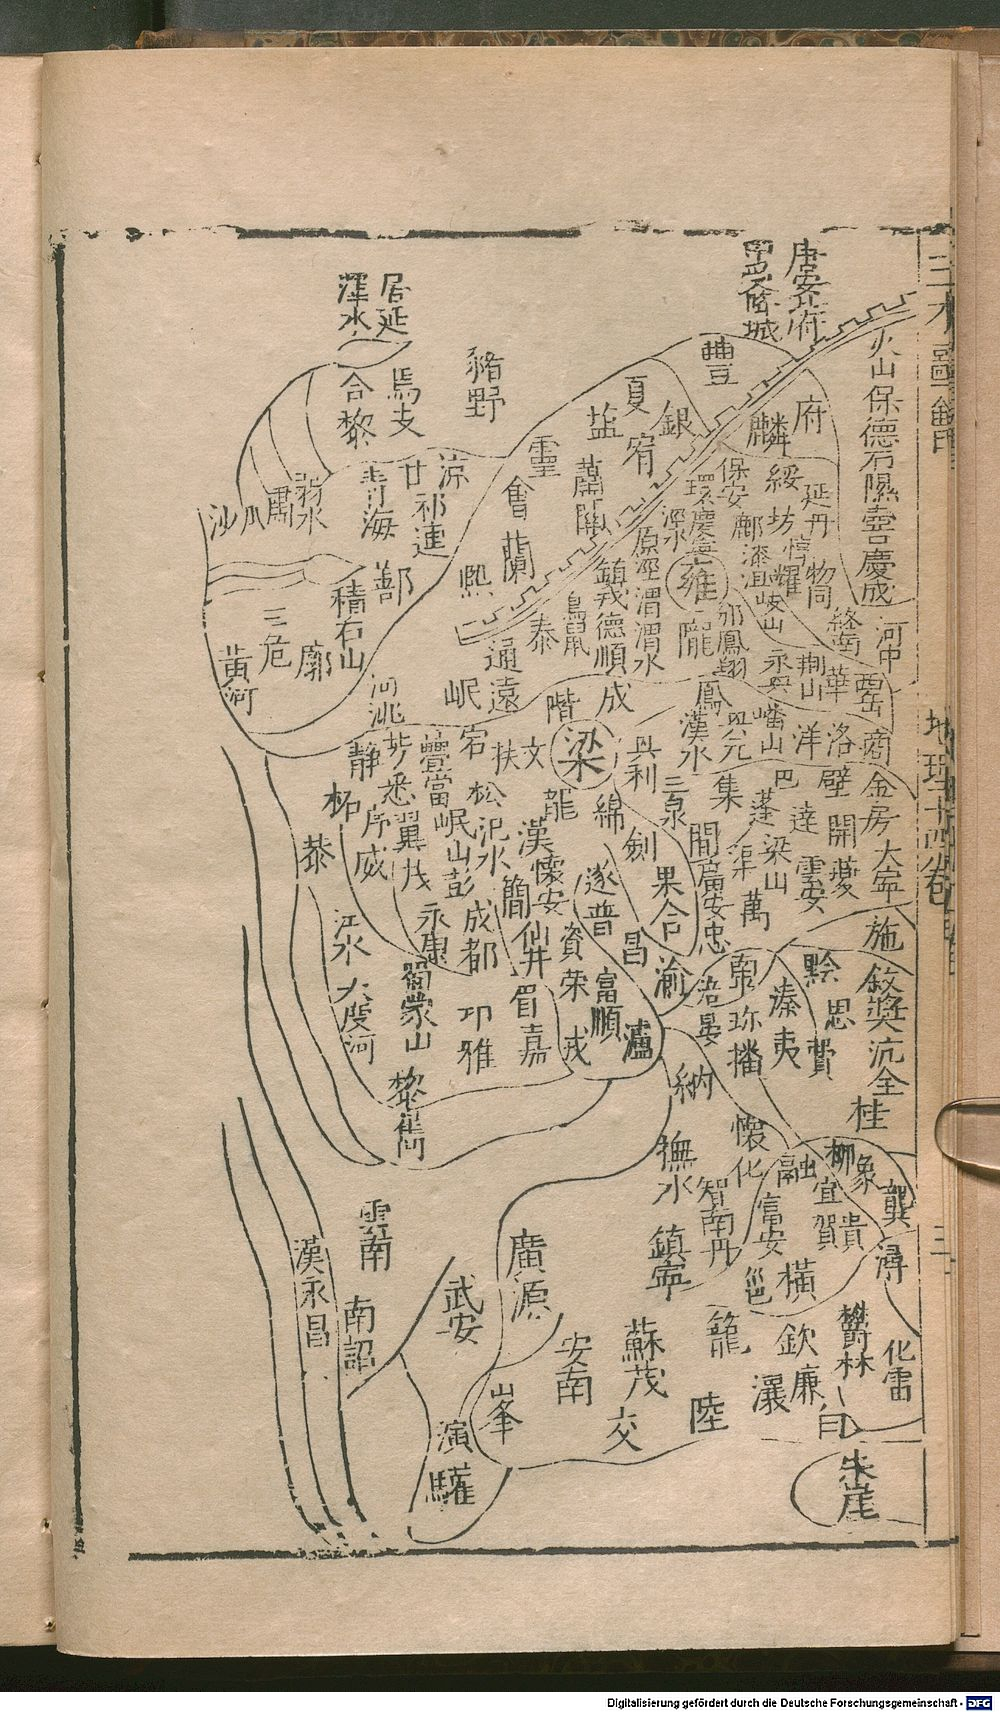 地理十四卷
三
唐安北府
中受降城
居延
澤水
火山保德石隰壺吉慶成
豐
豬野
合黎
焉支
夏
銀
鹽
宥
麟
府
靈
蕭關
會
蘭
涼
甘
祁連
青海
弱水
肅
瓜
沙
保安
綏
延丹
環慶寧
坊
鄜
漆沮
岐山
耀
同
涇水
雍
原涇渭渭水
鎮戎德順
隴
邠鳳翔
終南
河中
荆山
華
西岳
永興
鄯
積石山
三危
廓
黄河
熙
通遠
秦
鳥鼠
河洮
岷
階
成
鳳
興元
漢水
嶓山
洋
洛
商
梁
文
扶
宕
疊當
靜
悉
翼
茂
松
岷山彭
柘
恭
威
龍
綿
利
三泉
集
巴
蓬
壁
達
金房大寧
開夔
梁山
雲安
渠
萬
閬
廣安忠
劍
果合
遂普
昌
渝
漢
懷安
簡
仙井
資
榮
富順
瀘
戎
成都
永康
蜀蒙山
眉
嘉
卭
雅
江水
大度河
黎
巂
涪
黔
思
費
施
敘奬沅全
桂
溱
夷
珍
播
納
懷化
撫水
智南丹
鎮寧
融
柳
象
宜
賀
貴
龔
潯
富安
邕
橫
欽
廉
瀼
籠
鬱林
白
化雷
朱崖
雲南
南詔
漢永昌
武安
廣源
安南
蘇茂
交
陸
峯
演
驩
Digitalisierung gefördert durch die Deutsche Forschungsgemeinschaft - DFG